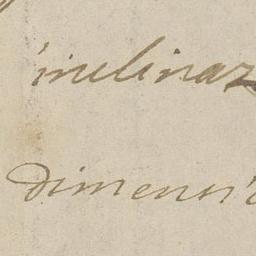 inclinaz
dimensi